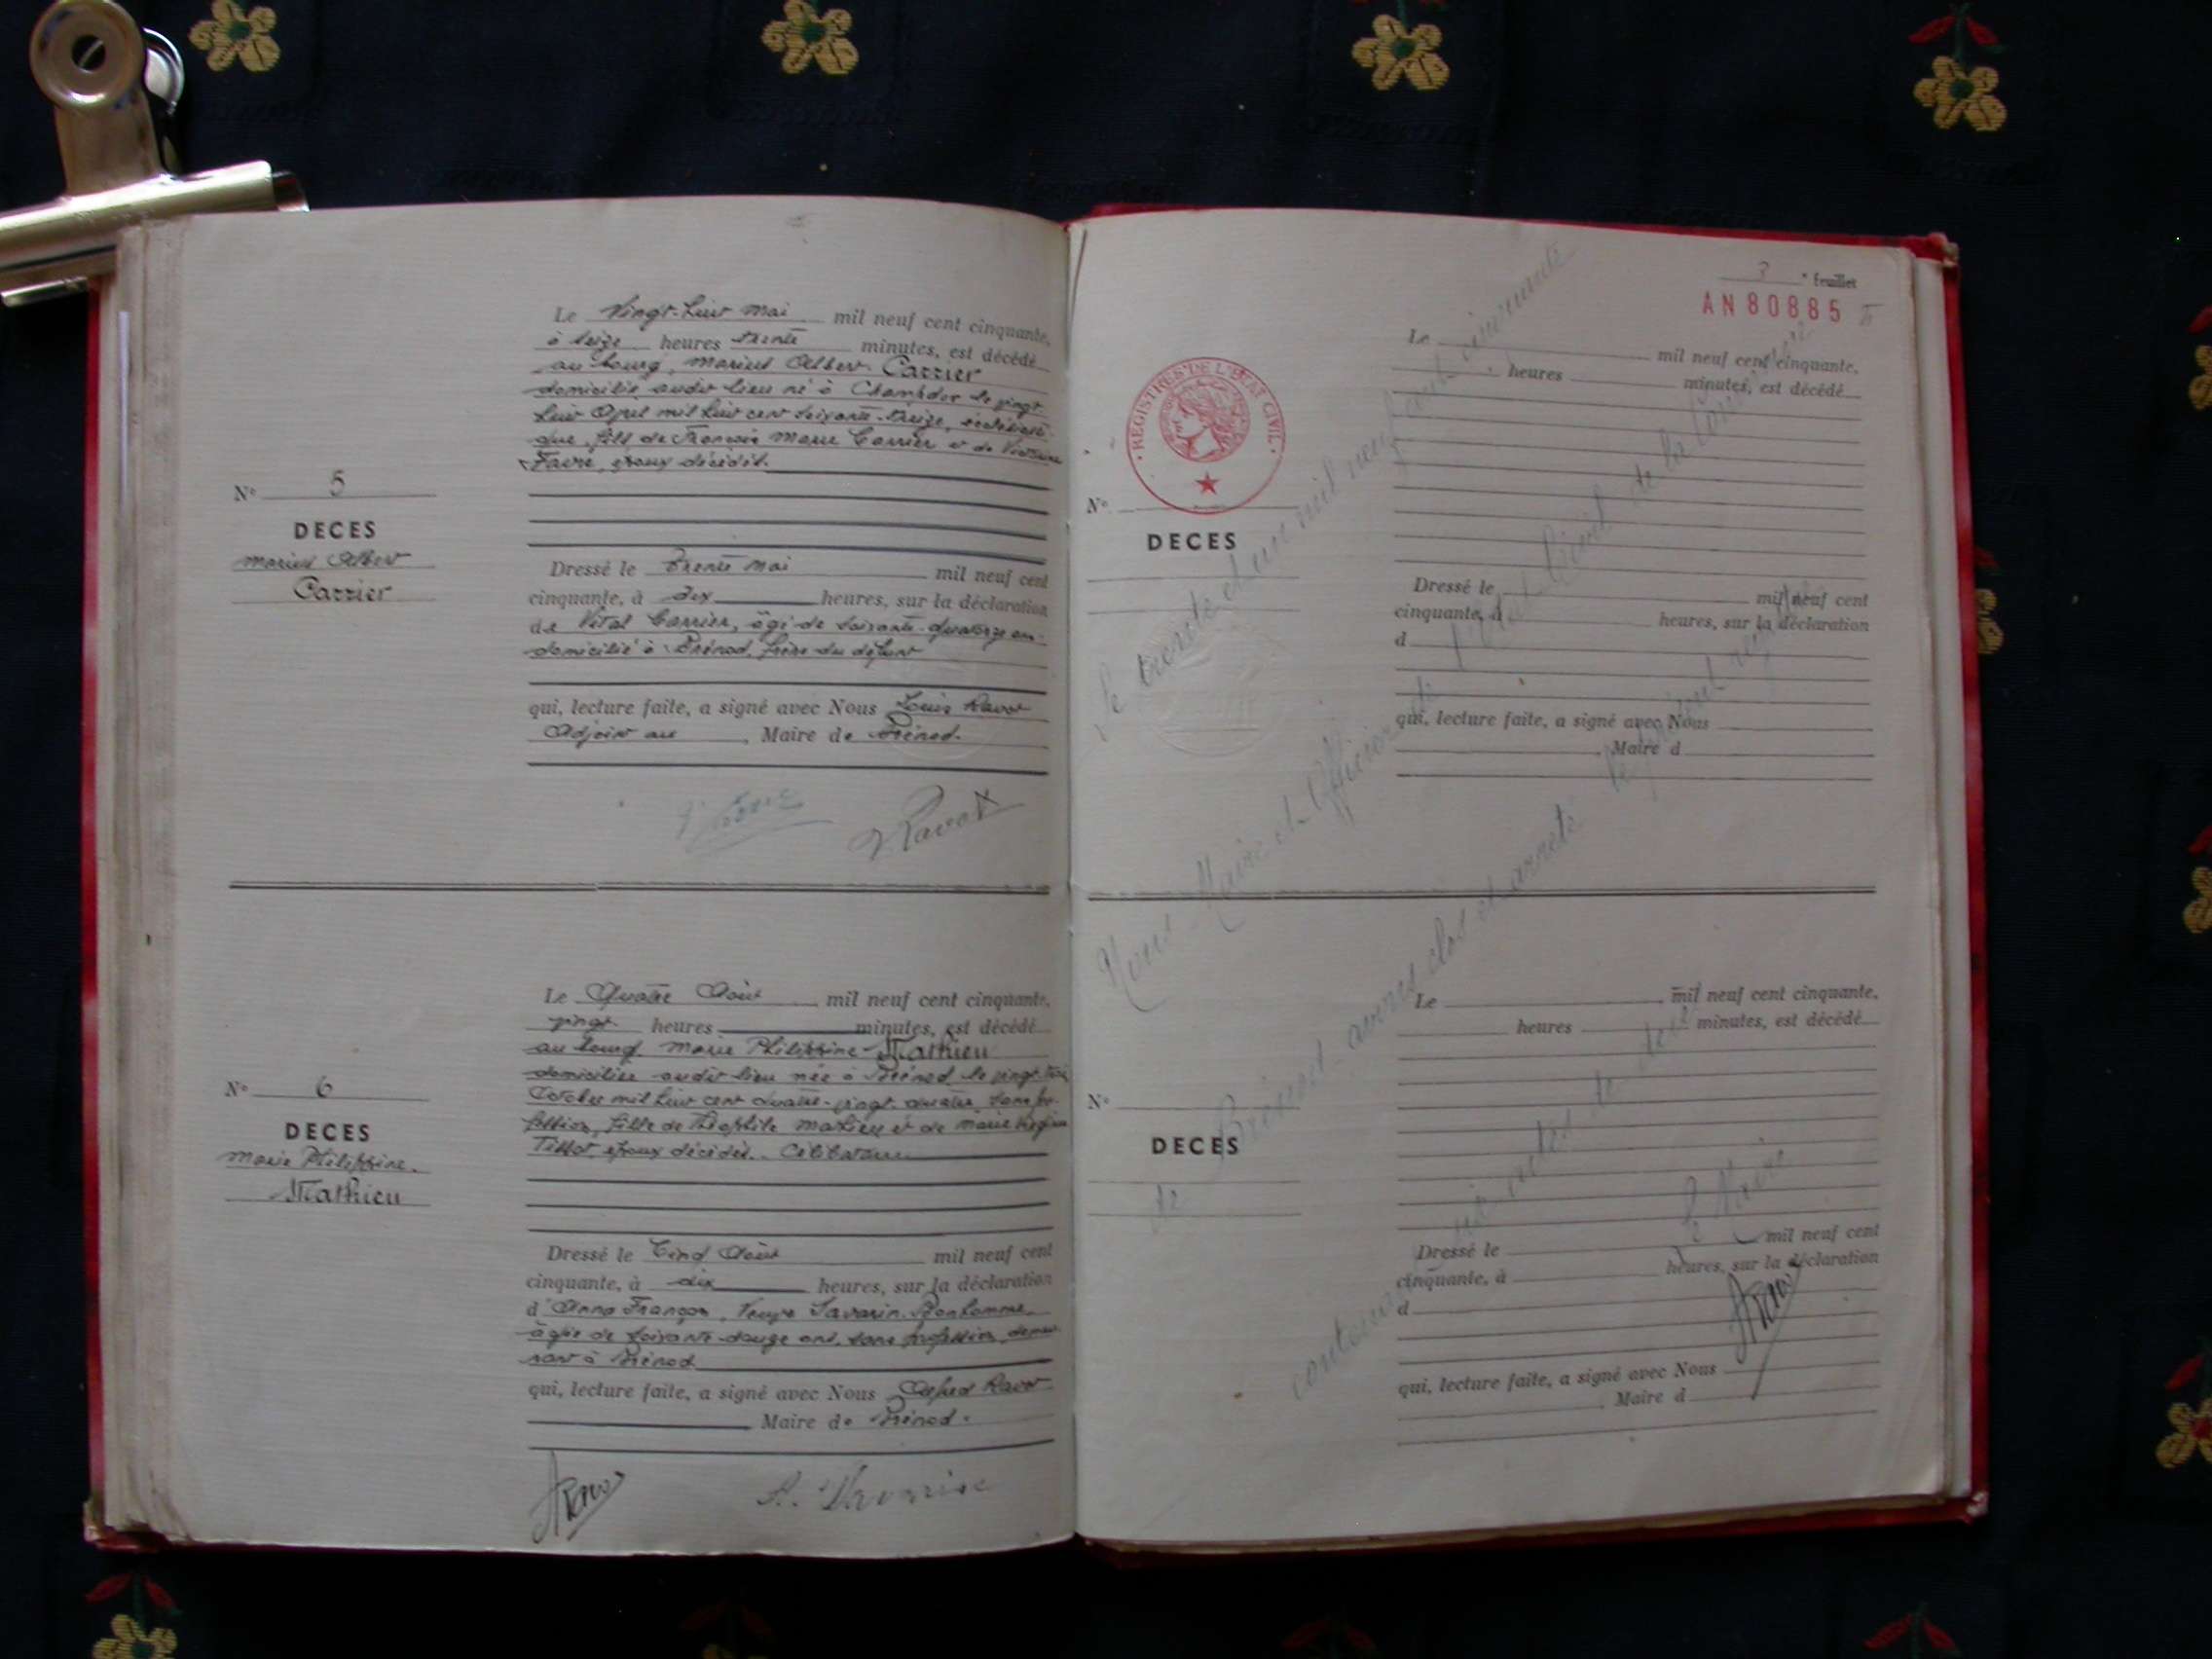 Le Vingt-huit Mai mil neuf cent cinquante,
à seize heures trente minutes, est décédé
au bourg, Marius Albert Carrier
domicilié audit lieu né à Champdor le vingt
huit Avril mil huit cent soixante-treize,
fils de François Marie Carrier et de
Favre, époux décédés.
N° 5
DECES
Marius Albert
Carrier
Dressé le Trente Mai mil neuf cent
cinquante, à dix heures, sur la déclaration
de Vital Carrier, âgé de soixante-quatorze ans
domicilié à Brénod, frère du défunt
qui, lecture faite, a signé avec Nous Louis Ravot
Adjoint au Maire de Brénod.
Ravot
Le Quatre Août mil neuf cent cinquante,
vingt heures minutes, est décédé
au bourg Marie Philippine Mathieu
domiciliée audit lieu née à Brénod le vingt trois
Octobre mil huit cent quatre-vingt quatre, sans pro-
fession, fille de Théophile Mathieu et de Marie
Tissot, époux décédés. Célibataire
N° 6
DECES
Marie Philippine
Mathieu
Dressé le Cinq Août mil neuf cent
cinquante, à dix heures, sur la déclaration
d'Anna Françon, Veuve Savarin-Bonhomme
âgée de soixante-douze ans, sans profession, demeu-
rant à Brénod
qui, lecture faite, a signé avec Nous Alfred Ravot
Maire de Brénod.
3 e feuillet
AN 80885
REGISTRES DE L'ETAT CIVIL
Le mil neuf cent cinquante,
heures minutes, est décédé
N°
DECES
Dressé le mil neuf cent
cinquante, à heures, sur la déclaration
d
qui, lecture faite, a signé avec Nous
Maire d
Le mil neuf cent cinquante,
heures minutes, est décédé
N°
DECES
Dressé le mil neuf cent
cinquante, à heures, sur la déclaration
d
qui, lecture faite, a signé avec Nous
Maire d
Le trente et un mil neuf cent cinquante
Nous Maire et Officier de l'Etat Civil de la Commune
de Brénod avons clos et arrêté le présent registre
contenant six actes de décès
Le Maire